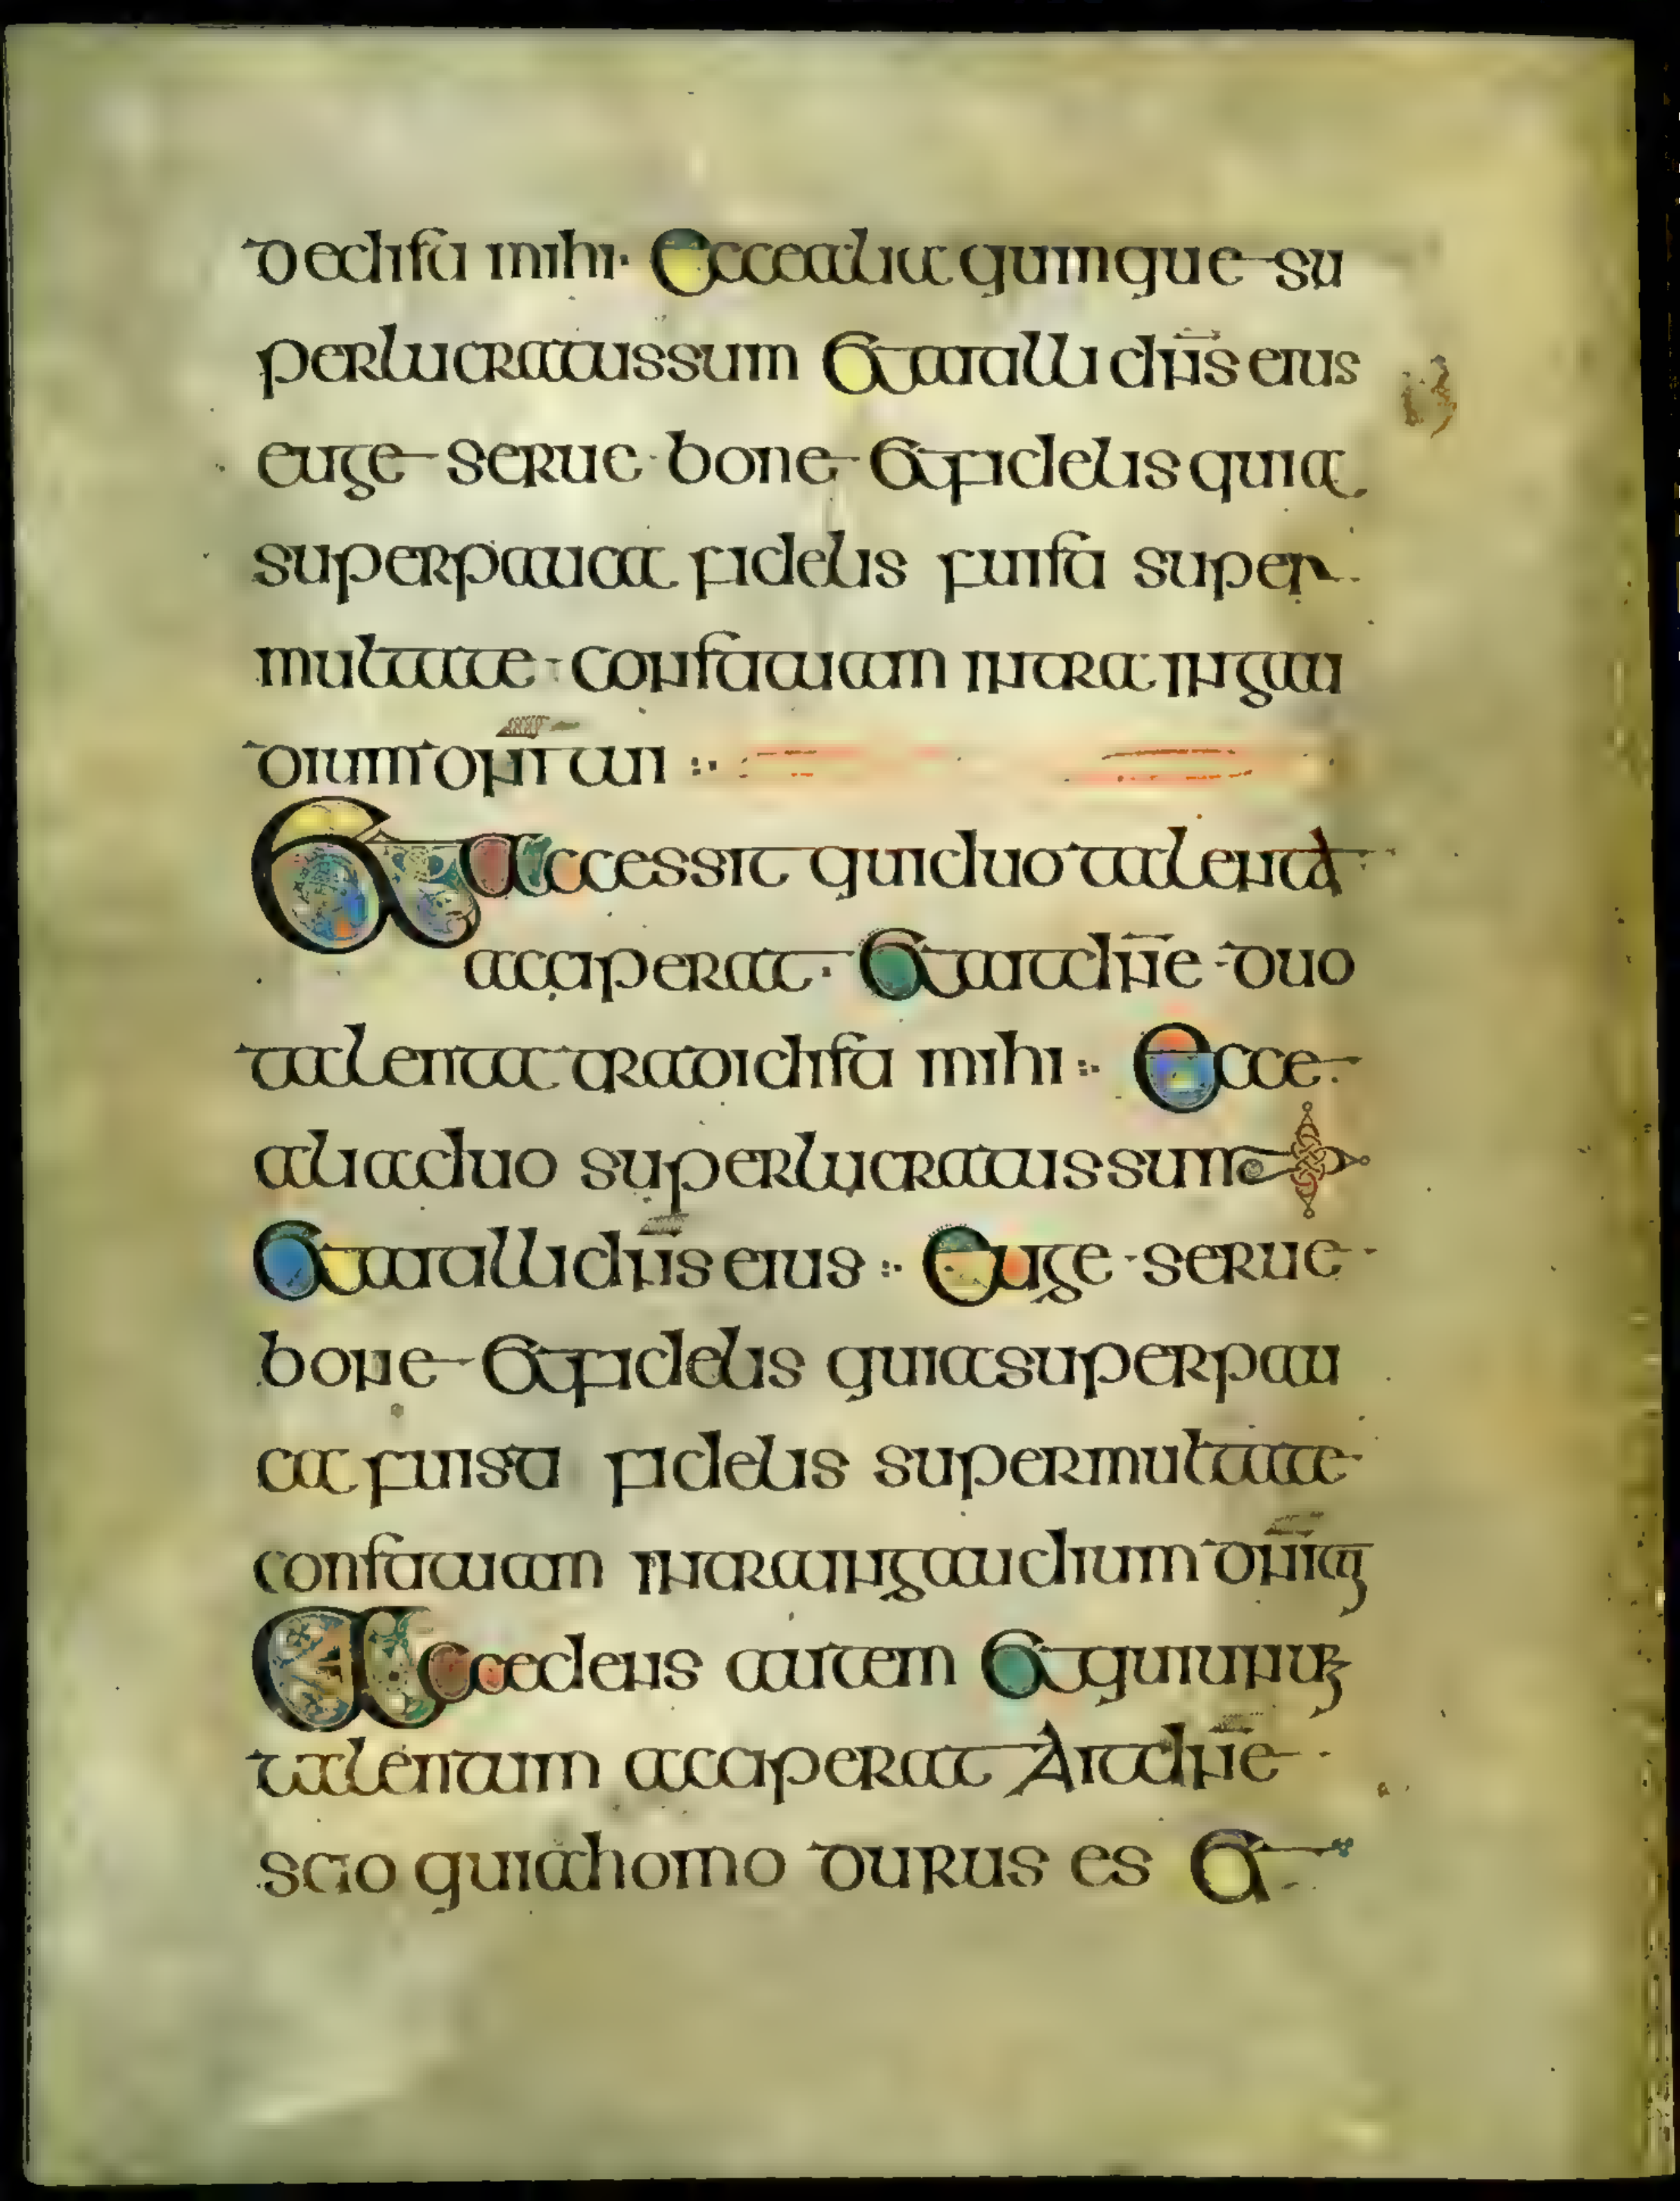 dedisti mihi· Ecce alia quinque su
perlucratus sum Et ait illi dn̄s eius
euge serue bone et fidelis quia
super pauca fidelis fuisti super
multa te · constituam intra in gau
dium dn̄i tui :·
Et accessit qui duo talenta
acciperat · Et ait dn̄e duo
talenta tradidisti mihi :· Ecce
alia duo superlucratus sum
Et ait illi dn̄s eius :· Euge · serue ·
bone et fidelis quia super pau
ca fuisti fidelis super multa te
constituam intra in gaudium dn̄i tui
Accedens autem et qui unum
talentum acciperat Ait dn̄e ·
scio quia homo durus es et